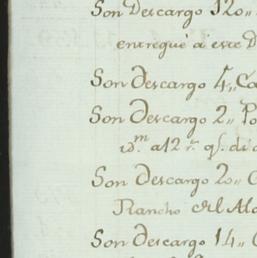 Son Descargo 120,,
entregué á este D
Son Descargo 4,, Ca
Son Descargo 2,, Po
a 12 r.s q.e di
Son Descargo 20,, C
Rancho del Al
Son Descargo 14,, C